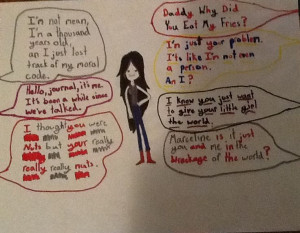 I'm not mean,
I'm a thousand
years old,
an I just lost
track of my moral
code.
Hello, journal, it's me.
It's been a while since
we've talked.
I thought you were
Nuts but your really
really really nuts.
Daddy, Why Did
You Eat My Fries?
I'm just your problem,
It's like I'm not even
a person,
Am I?
I know you just want
to give your little girl
the world.
Marceline is it just
you and me in the
Wreckage of the world?